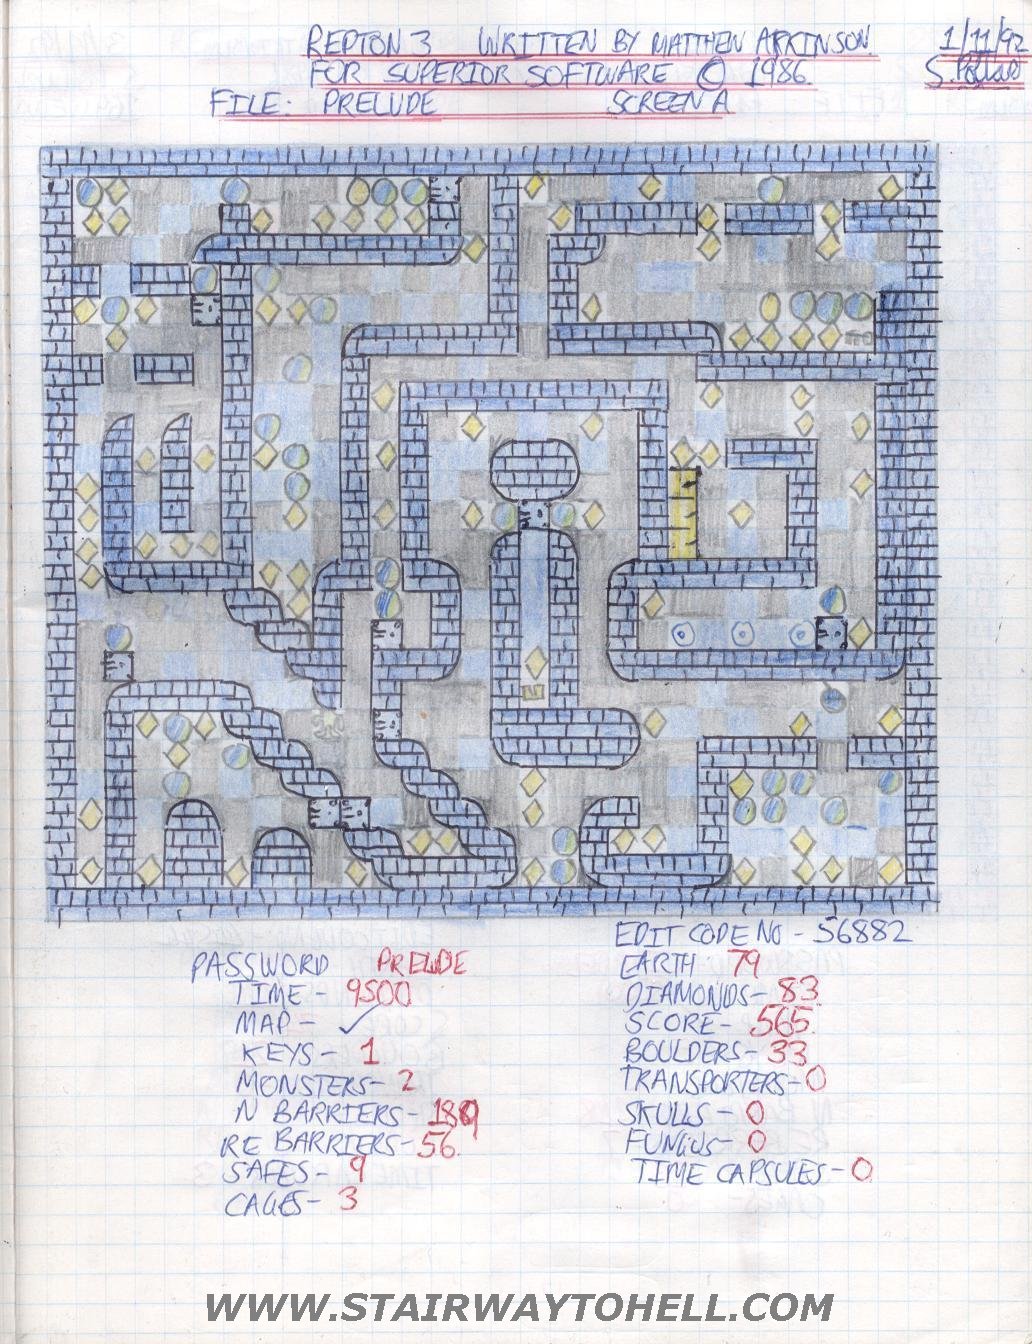 REPTON 3 WRITTEN BY MATTHEW ATKINSON 1/11/92
FOR SUPERIOR SOFTWARE © 1986.
FILE: PRELUDE SCREEN A
EDIT CODE NO - 56882
PASSWORD PRELUDE
TIME - 9500
MAP - ✓
KEYS - 1
MONSTERS - 2
N BARRIERS - 189
RE BARRIERS - 56
SAFES - 9
CAGES - 3
EARTH 79
DIAMONDS - 83
SCORE - 565
BOULDERS - 33
TRANSPORTERS - 0
SKULLS - 0
FUNGUS - 0
TIME CAPSULES - 0
WWW.STAIRWAYTOHELL.COM